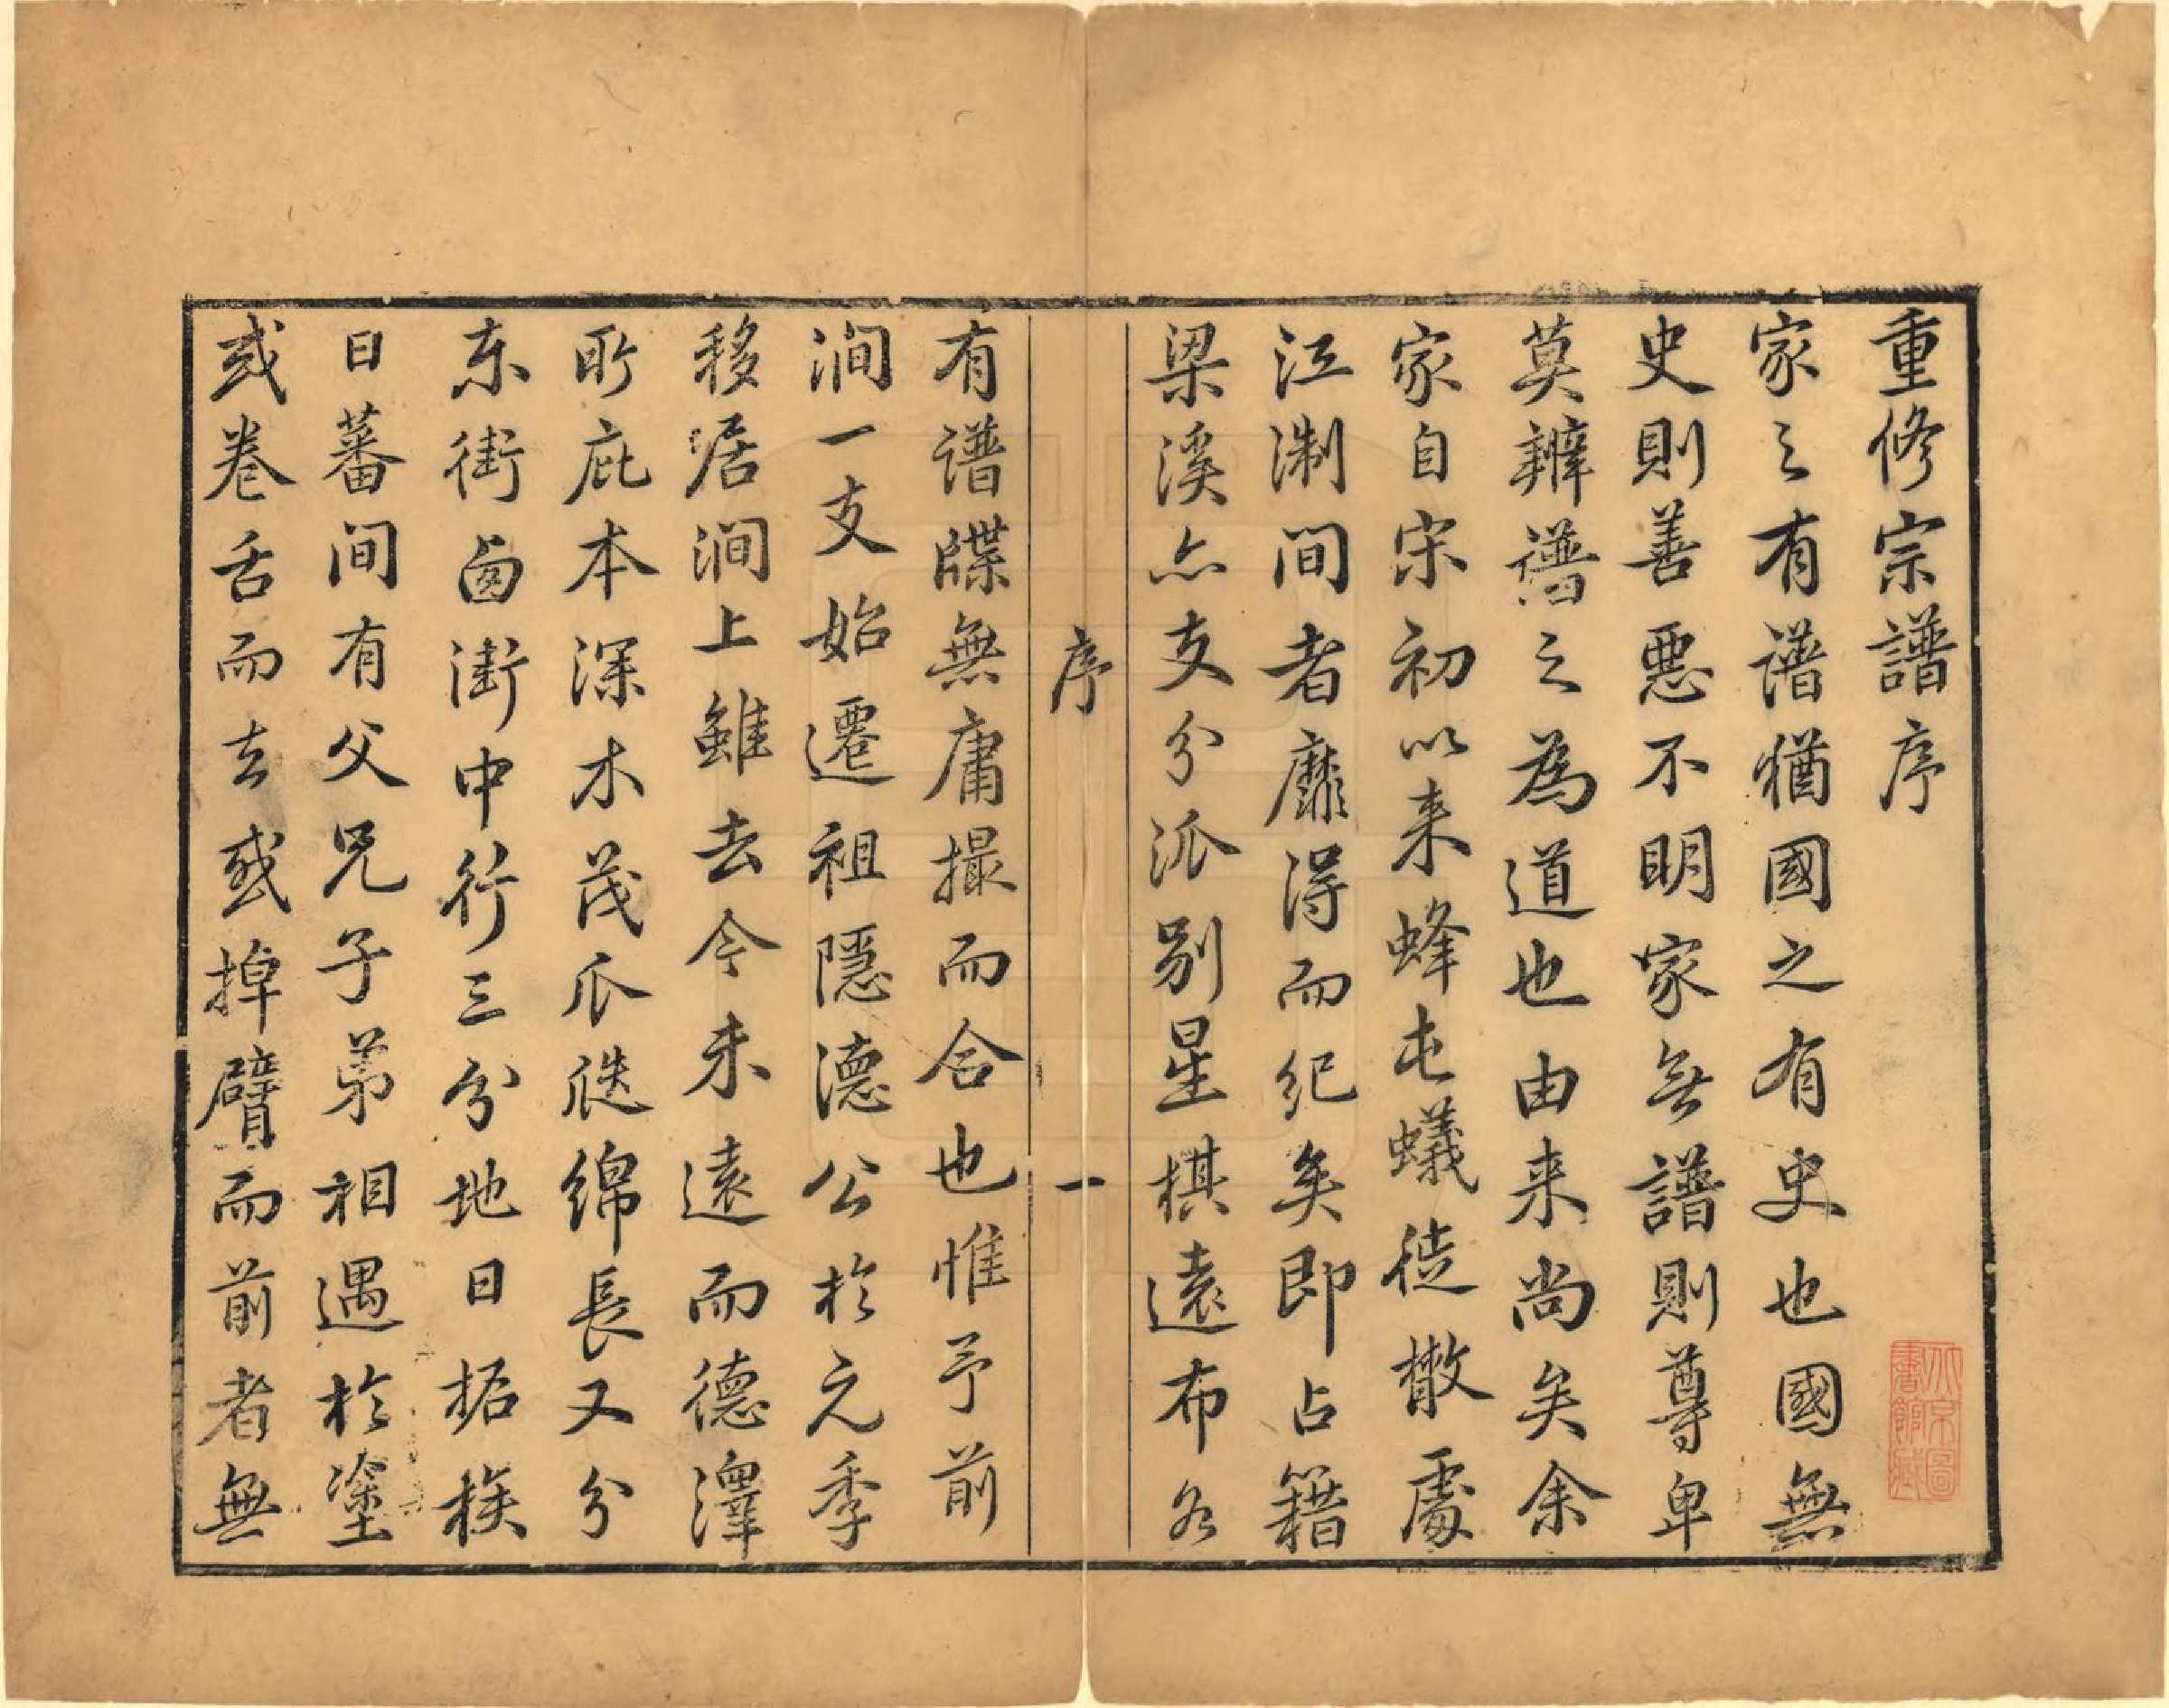 重修宗譜序
家之有谱猶國之有史也國無
史則善惡不明家無譜則尊卑
莫辨譜之為道也由来尚矣余
家自宋初以来蜂屯蟻徙散處
江淛間者靡得而纪矣即占籍
梁溪亦支分派别星棋遠布各
序 一
有谱牒無庸撮而合也惟予前
澗一支始遷祖隱德公於元季
移居澗上雖去今未遠而德澤
所庇本深木茂瓜瓞綿長又分
东街卤街中行三分地日拓族
日蕃间有父兄子弟相遇於塗
或卷舌而去或掉臂而前者無
北京圖
書館藏